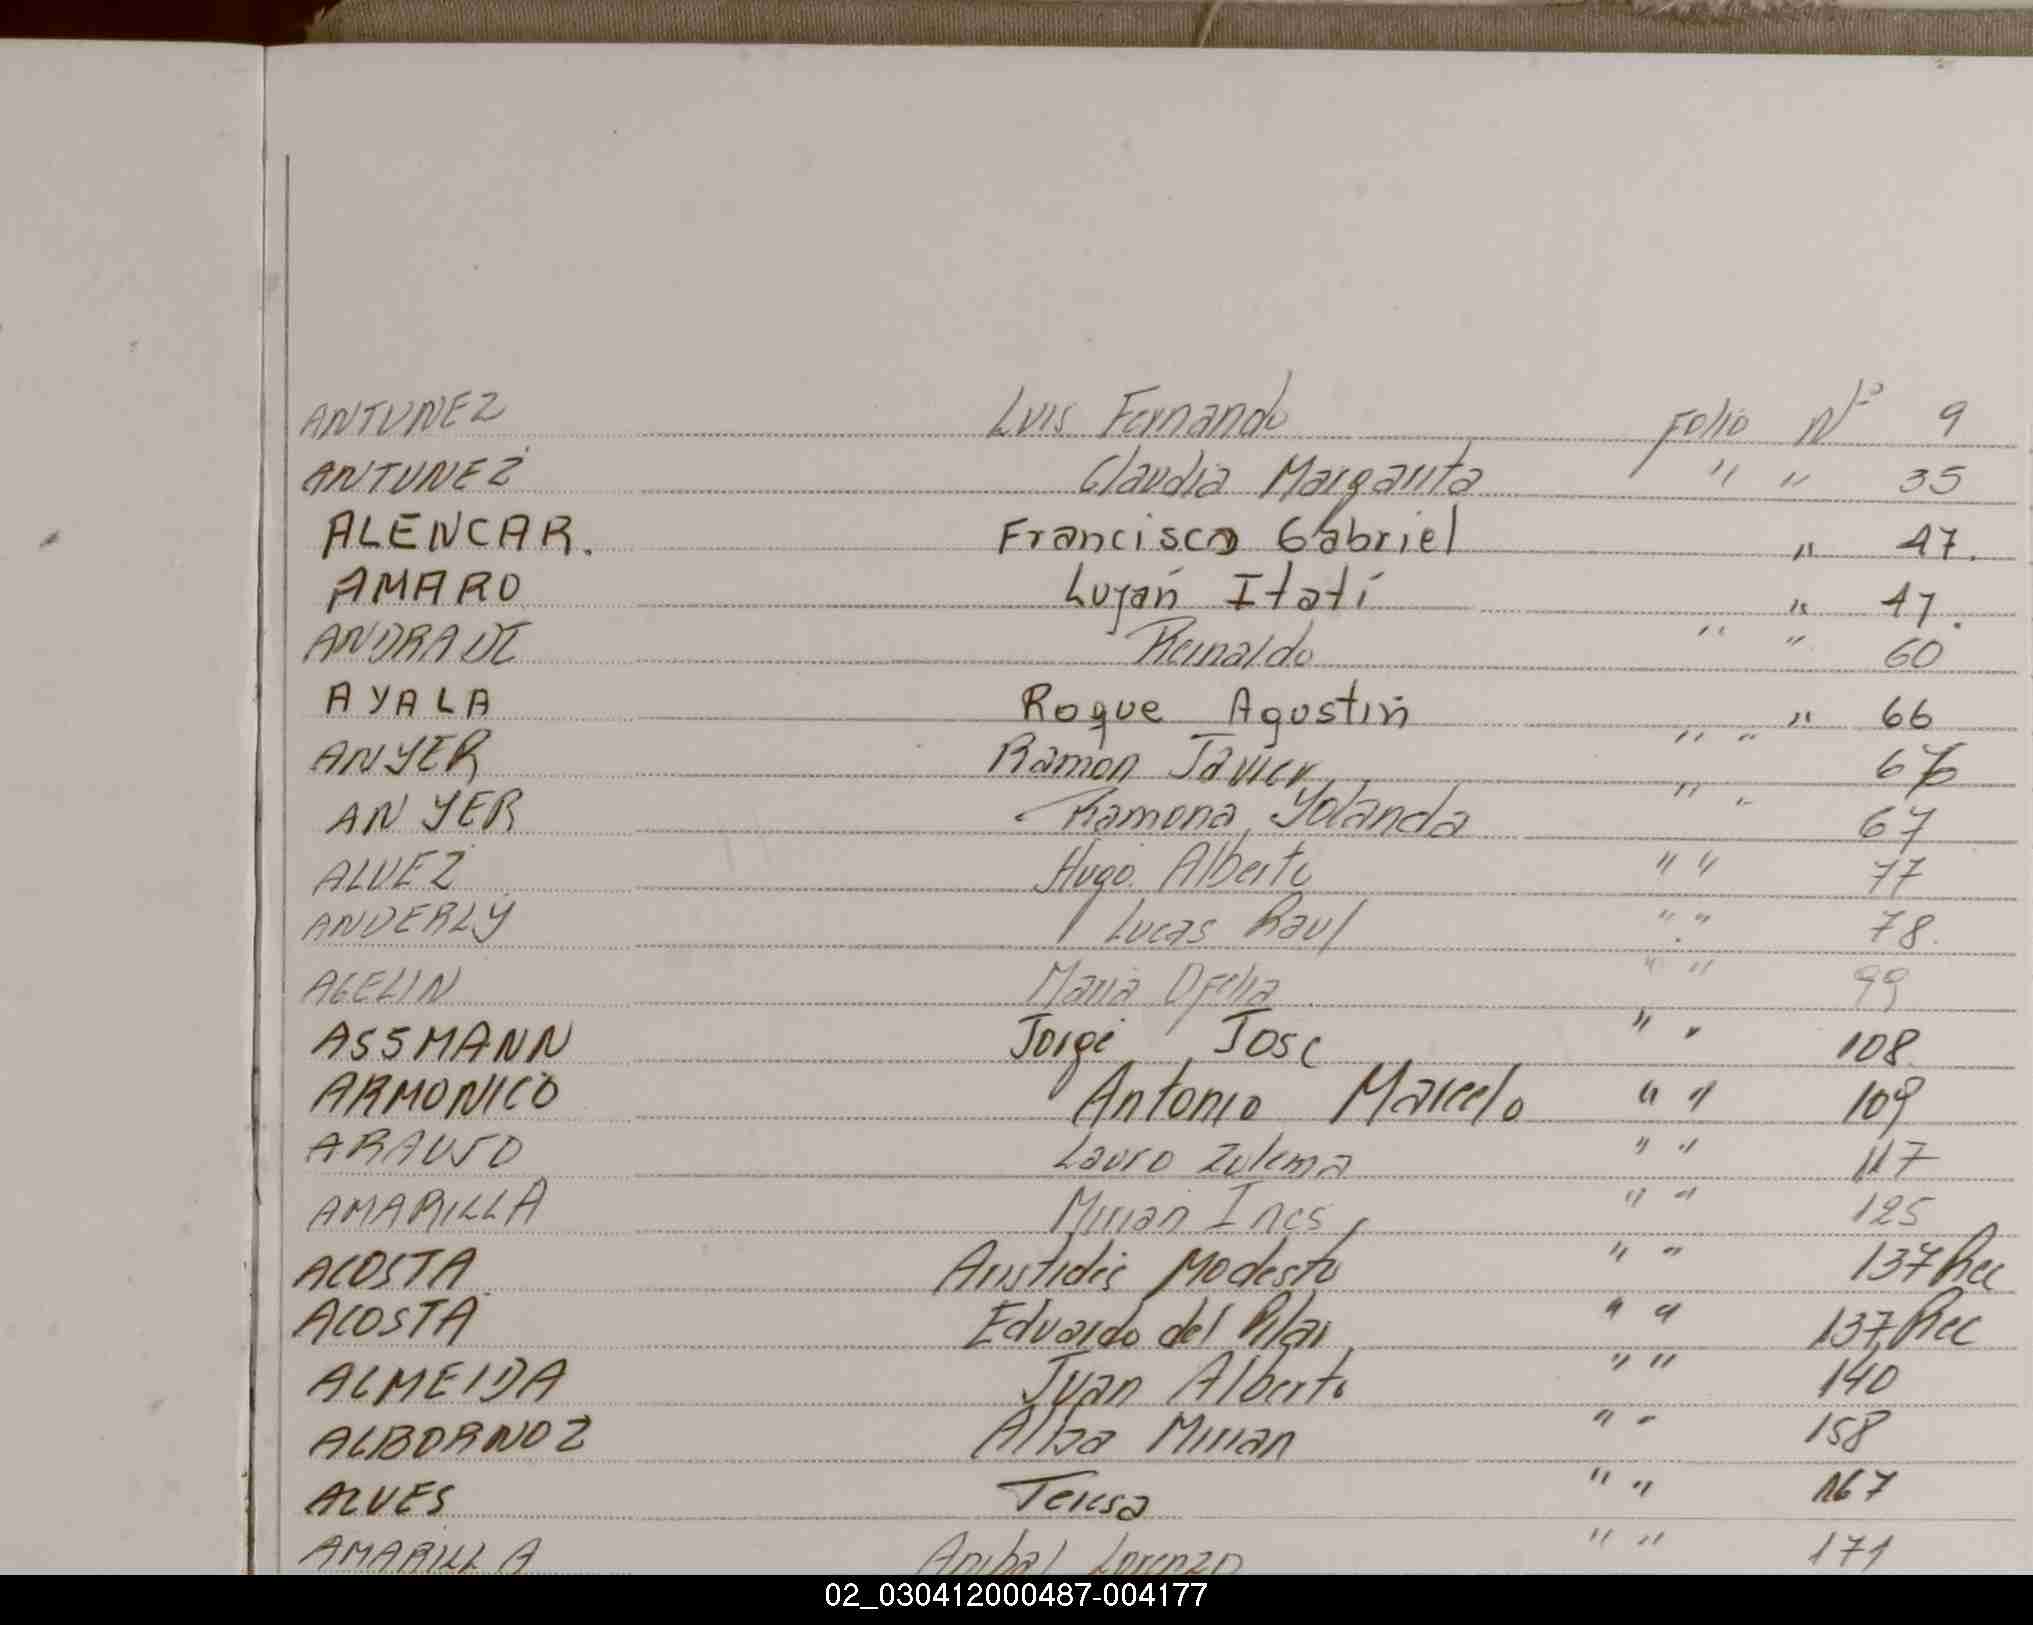 ANTUNEZ Luis Fernando Folio Nº 9
ANTUNEZ Claudia Margarita " " 35
ALENCAR. Francisco Gabriel " 47.
AMARO Luján Itatí " 47.
ANDRADE Reinaldo " " 60
AYALA Roque Agustín " 66
ANYER Ramon Javier " "
ANYER Ramona Yolanda " " 67
ALVEZ Hugo Alberto " " 77
ANDERLY Lucas Raul " " 78.
Maria Ofelia " " 99
ASSMANN Jorge Jose " " 108
ARMONICO Antonio Marcelo " " 109
ARAUJO Lauro Zulema " " 117
AMARILLA Mirian Ines " " 125
ACOSTA Aristides Modesto " " 137 Rec
ACOSTA Eduardo del Pilar " " 137 Rec
ALMEIDA Juan Alberto " " 140
ALBORNOZ Alba Mirian " " 158
ALVES Teresa " " 167
AMARILLA Anibal Lorenzo " " 171
02_030412000487-004177